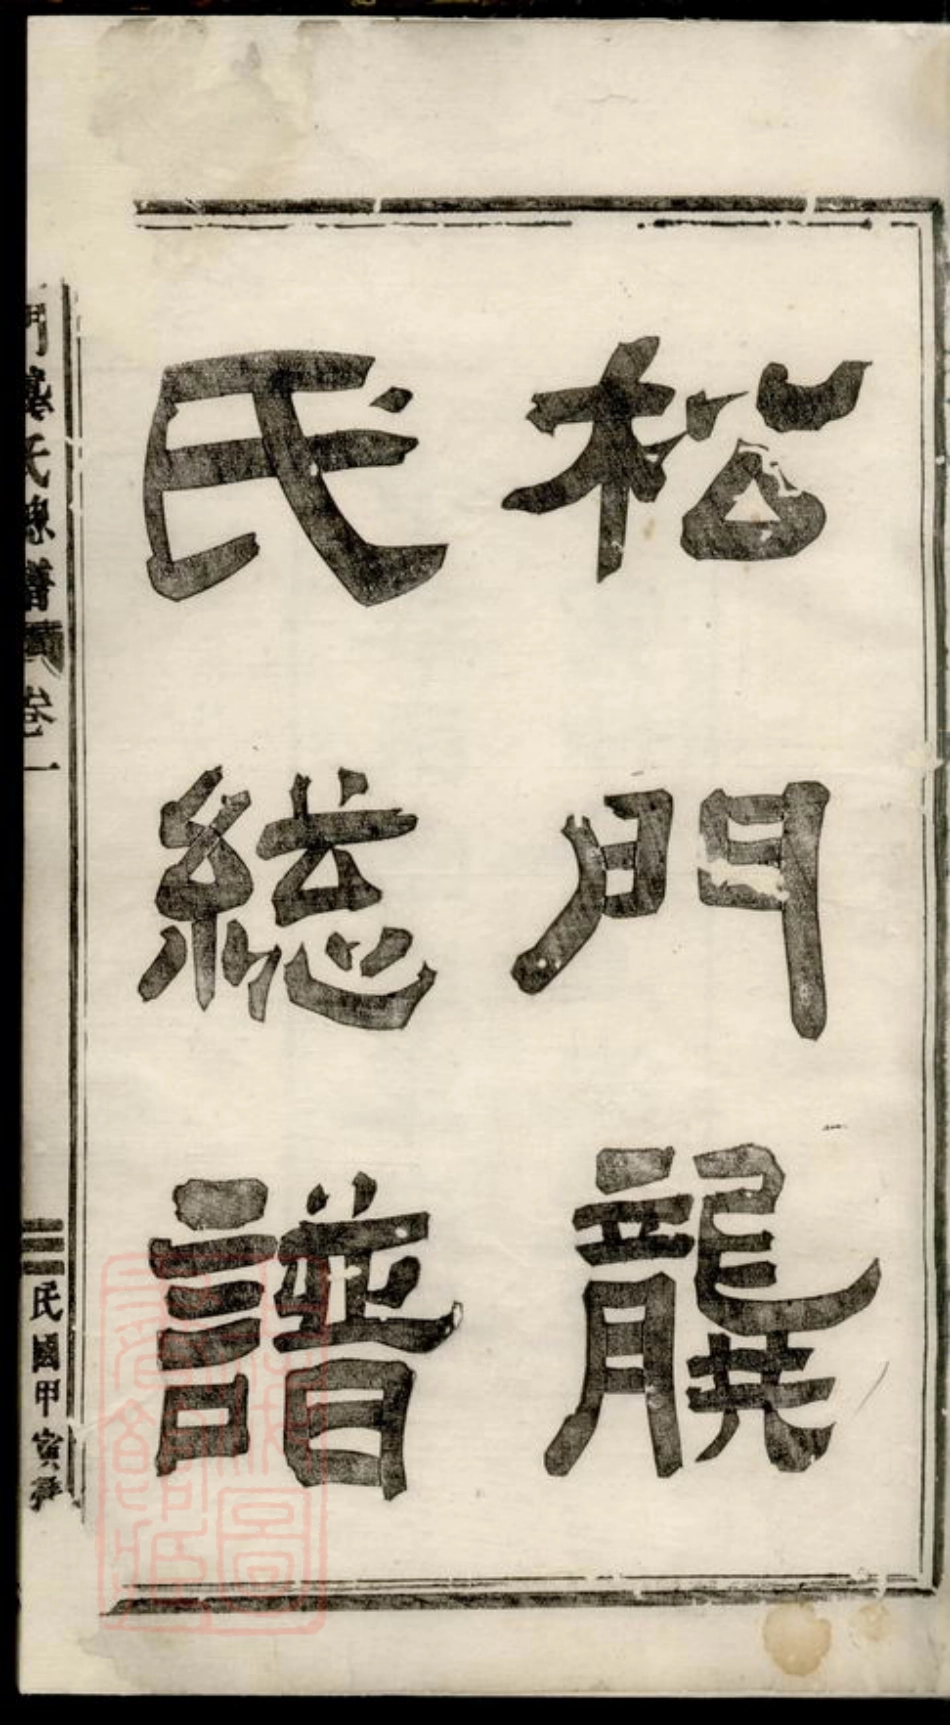 松門龔
氏總譜
門龔氏總譜
卷一
民國甲寅